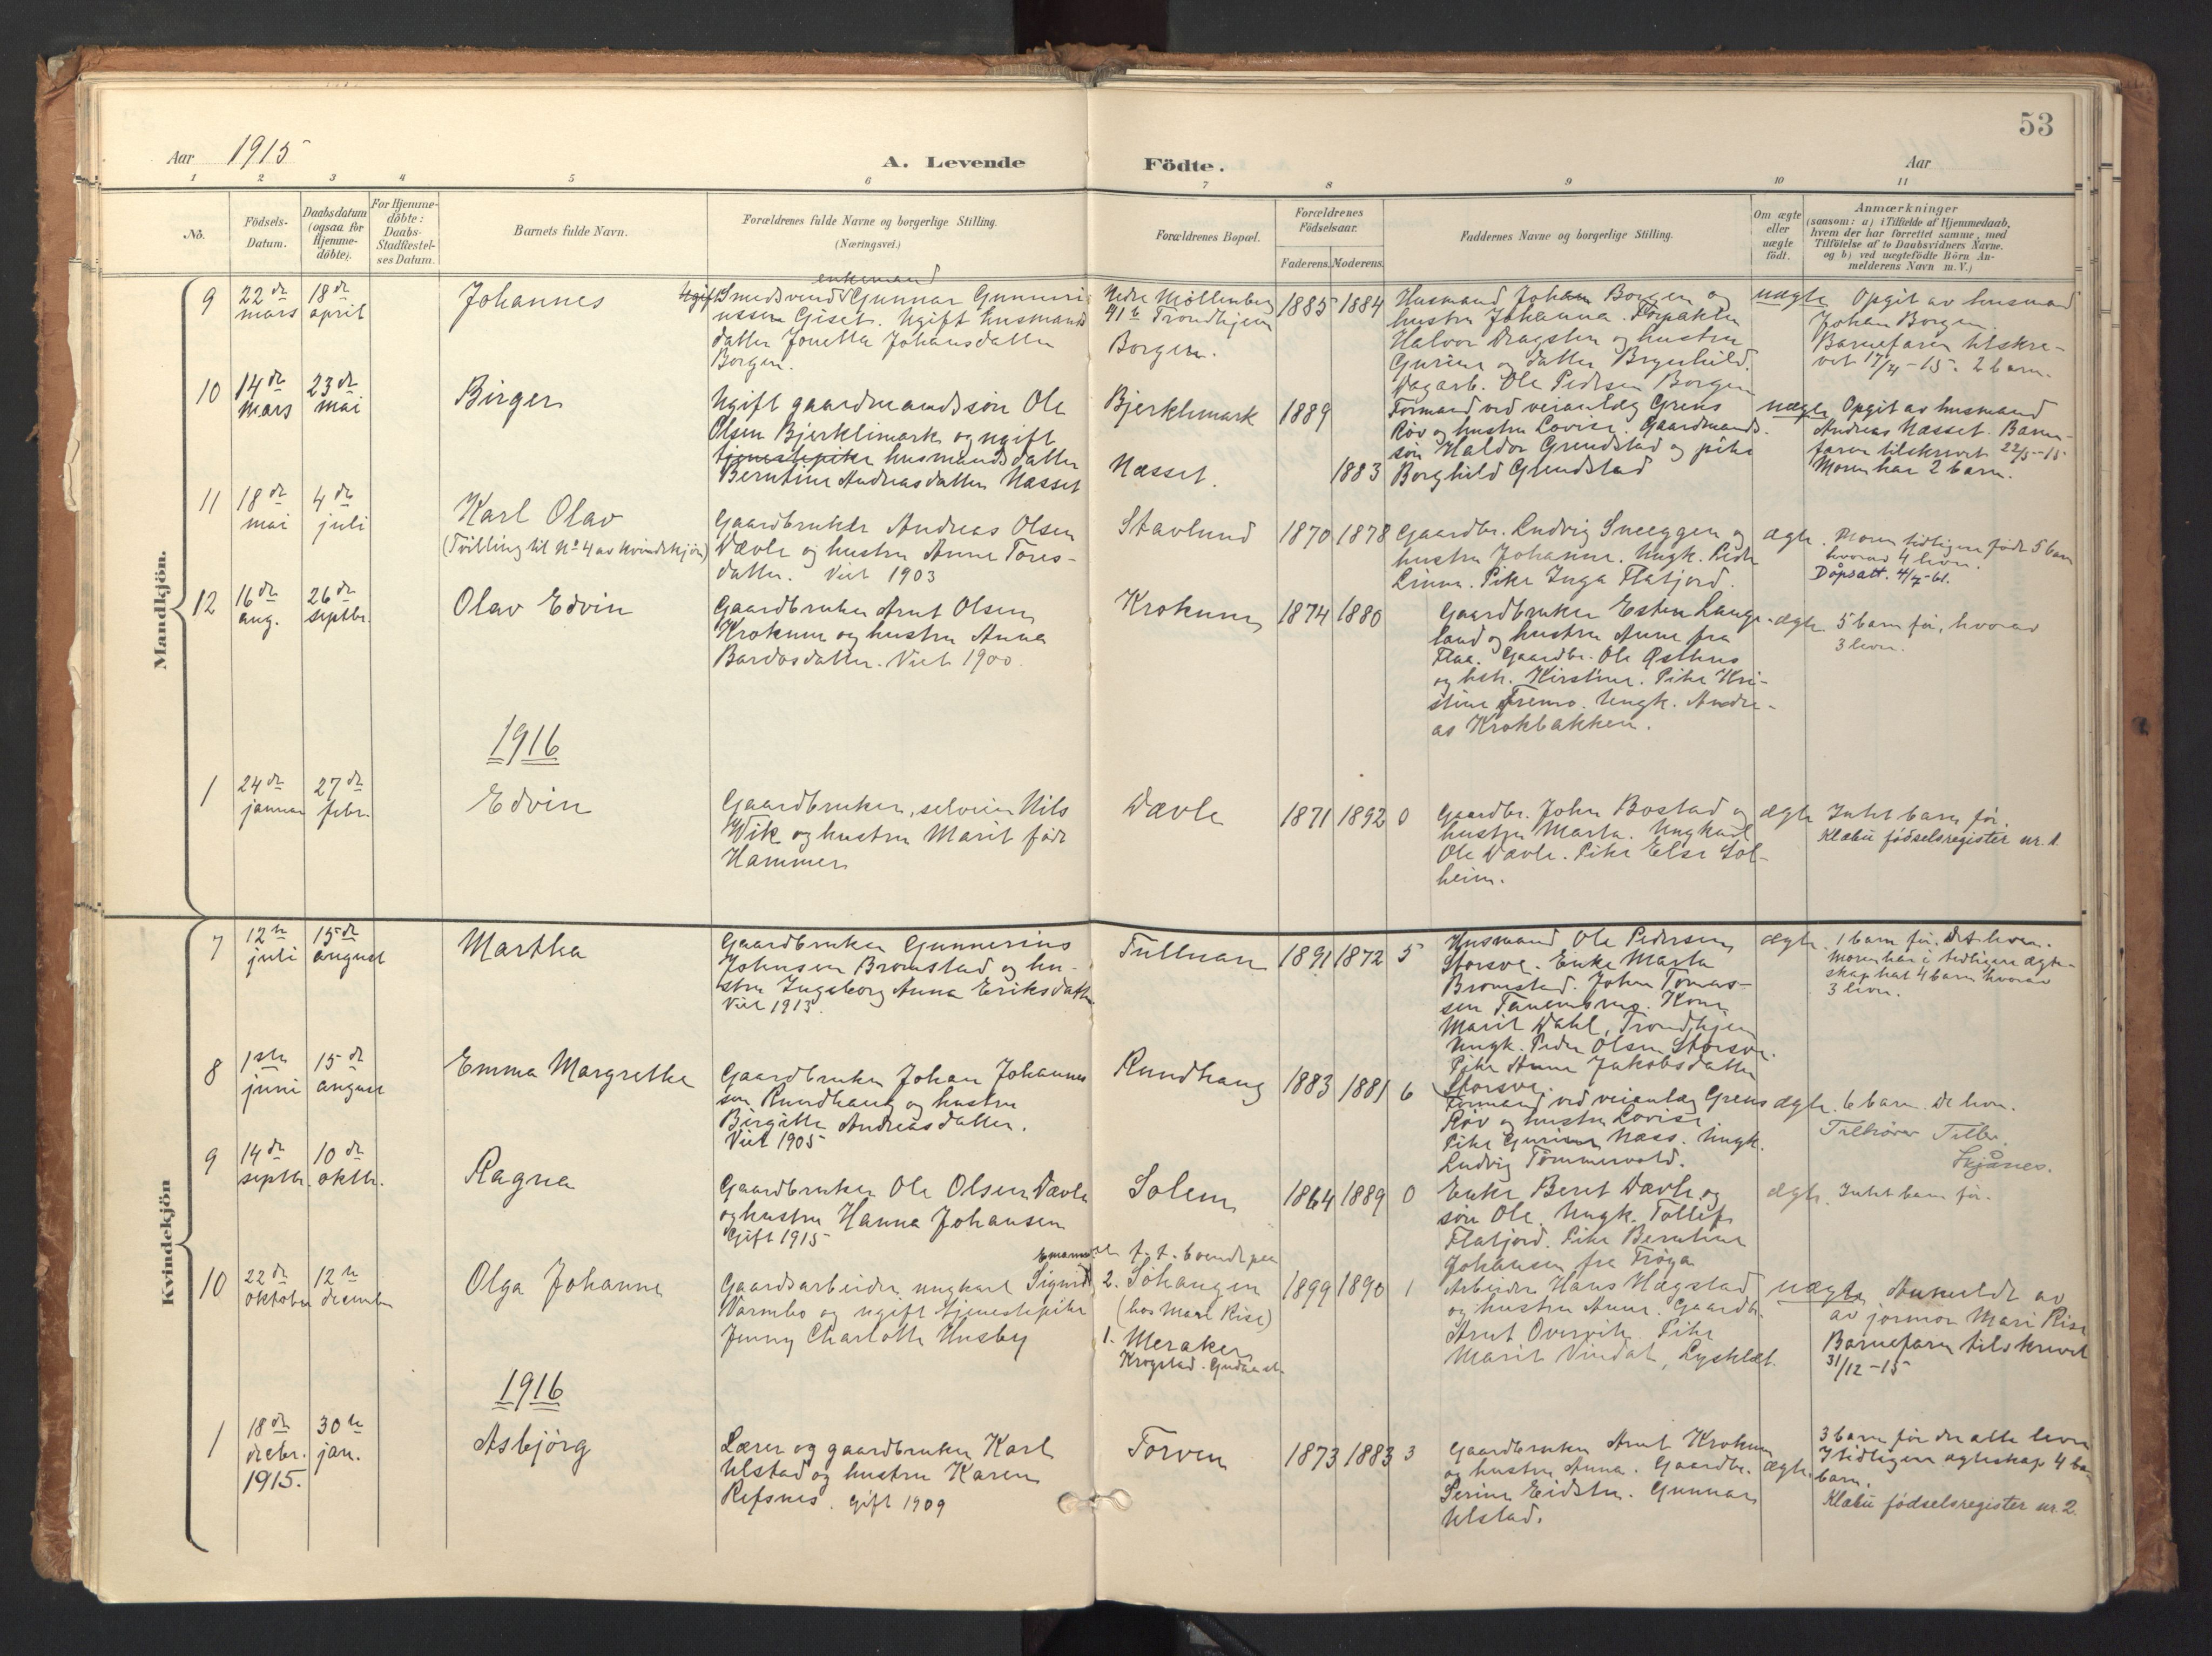 53
Aar 1915
A. Levende Födte.
Aar
1 2 3 4 5 6 7 8 9 10 11
No.
Födsels-
Datum.
Daabsdatum
(ogsaa for
Hjemme-
döbte).
For Hjemme-
döbte:
Daabs-
Stadfæstel-
ses Datum.
Barnets fulde Navn.
Forældrenes fulde Navne og borgerlige Stilling.
(Næringsvei.)
Forældrenes Bopæl.
Forældrenes
Födselsaar.
Faderens. Moderens.
Faddernes Navne og borgerlige Stilling.
Om ægte
eller
uægte
födt.
Anmærkninger
(saasom: a) i Tilfælde af Hjemmedaab,
hvem der har forrettet samme, med
Tilföielse af to Daabsvidners Navne.
og b) ved uægtefödte Börn An-
melderens Navn m. V.)
Mandkjön.
9
22de
mars
18de
april
Johannes
enkemand
Ugift Smedsvend Gunnar Gunneri-
ussen Gisets. Ugift husmands
datter Jonetta Johansdatter
Borgen.
Nedre Möllenberg
41b Trondhjem
Borgen.
1885 1884
Husmand Johan Borgen og
hustru Johanna. Forpakter
Halvor Dragsten og hustru
Gurine og datter Brynhild.
Dagarb. Ole Pedersen Borgen
uægte
Opgit av husmand
Johan Borgen.
Barnefaren tilskre-
vet 17/4-15. 2 barn.
10
14de
mars
23de
mai
Birger
Ugift gaardmandssön Ole
Olsen Bjerklimark og ugift
tjenestepike husmandsdatter
Berntine Andreasdatter Næsset
Bjerklimark
Næsset.
1889
1883
Formand ved veianlæg Grens
Röv og hustru Lovise. Gaardmands-
sön Haldor Grendstad og pike
Borghild Grendstad
uægte
Opgit av husmand
Andreas Næsset. Barne-
faren tilskrevet 22/5-15
Moren har 2 barn.
11
18de
mai
4de
juli
Karl Olav
(Tvilling til No 4 av kvindekjön)
Gaardbruker Andreas Olsen
Dævle og hustru Anne Tores-
datter. Viet 1903
Stavlund
1870 1878
Gaardbr. Ludvig Sneeggen og
hustru Johanne. Ungk. Peder
Linne. Pike Inga Flatjord.
ægte.
Moren tidligere födt 5 barn
hvorav 4 lever.
Dåpsatt. 4/7-61.
12
16de
aug.
26de
septbr.
Olav Edvin
Gaardbruker Arnt Olsen
Krokum og hustru Anna
Bardosdatter. Viet 1900.
Krokum
1874 1880
Gaardbruker Esten Lange-
land og hustru Anne fra
Flaa. Gaardbr. Ole Østhus
og hstr. Kirstine. Pike Kri-
stine Fremo. Ungk. Andre-
as Krokbakken.
ægte.
5 barn för, hvorav
3 lever.
1916
1
24de
januar
27de
febr.
Edvin
Gaardbruker, selveier Nils
Wik og hustru Marit födt
Hammer
Dævle
1871 1892 0
Gaardbr. John Bostad og
hustru Marta. Ungkarl
Ole Dævle. Pike Else Sol-
heim.
ægte
Intet barn för.
Klæbu födselsregister nr. 1.
Kvindekjön
7
12te
juli
15de
august
Martha
Gaardbruker Gunnerius
Johnsen Bromstad og hu-
stru Ingeborg Anna Eriksdatter
Viet 1913.
Tulluan
1891 1872 5
Husmand Ole Pedersen
Storsve. Enke Marta
Bromstad. John Tomas-
sen Tanemsmo. Kone
Marit Dahl, Trondhjem
Ungk. Peder Olsen Storsve.
Pike Anne Jakobsdatter
Storsve.
ægte.
1 barn för. Det lever.
Moren har i tidligere ægte-
skap hat 4 barn hvorav
3 lever.
8
1ste
juni
15de
august
Emma Margrethe
Gaardbruker Johan Johannes-
sen Rundhaug og hustru
Birgitte Andreasdatter.
Viet 1905
Rundhaug
1883 1881 6
Formand ved veianlæg Grens
Röv og hustru Lovise
Pike Gurine Næss. Ungk.
Ludvig Tömmervold.
ægte.
6 barn. De lever.
Tilhörer Tiller.
Skjånes.
9
14de
septbr.
10de
oktbr.
Ragna
Gaardbruker Ole Olsen Dævle
og hustru Hanna Johansen
Gift 1915
Solem
1864 1889 0
Enke Beret Dævle og
sön Ole. Ungk. Tollef
Flatjord. Pike Berntine
Johansen fra Fröya
ægte.
Intet barn för.
10
22de
oktober
12te
december
Olga Johanne
Gaardsarbeider ungkarl Sigurd
Varmbo og ugift tjenestepike
Jenny Charlotte Husby
2. Sohaugen
1. Meraker
1899 1890 1
Arbeider Hans Hægstad
og hustru Anne. Gaardbr.
Arnt Overvik. Pike
Marit Vindal, Lysklæt.
uægte
Anmeldt av
av jormor Mari Rise
Barnefaren tilskrevet
31/12-15
1916
1
18de
decbr.
1915.
30te
jan.
Asbjörg
Lærer og gaardbruker Karl
Ulstad og hustru Karen
Refsnes. Gift 1909
Torven
1873 1883 3
Gaardbruker Arnt Krokum
og hustru Anna. Gaardbr.
Serine Eidstu. Gunnar
Ulstad.
ægte.
3 barn för der alle lever
I tidligere ægteskap 4
barn.
Klæbu födselsregister nr. 2.